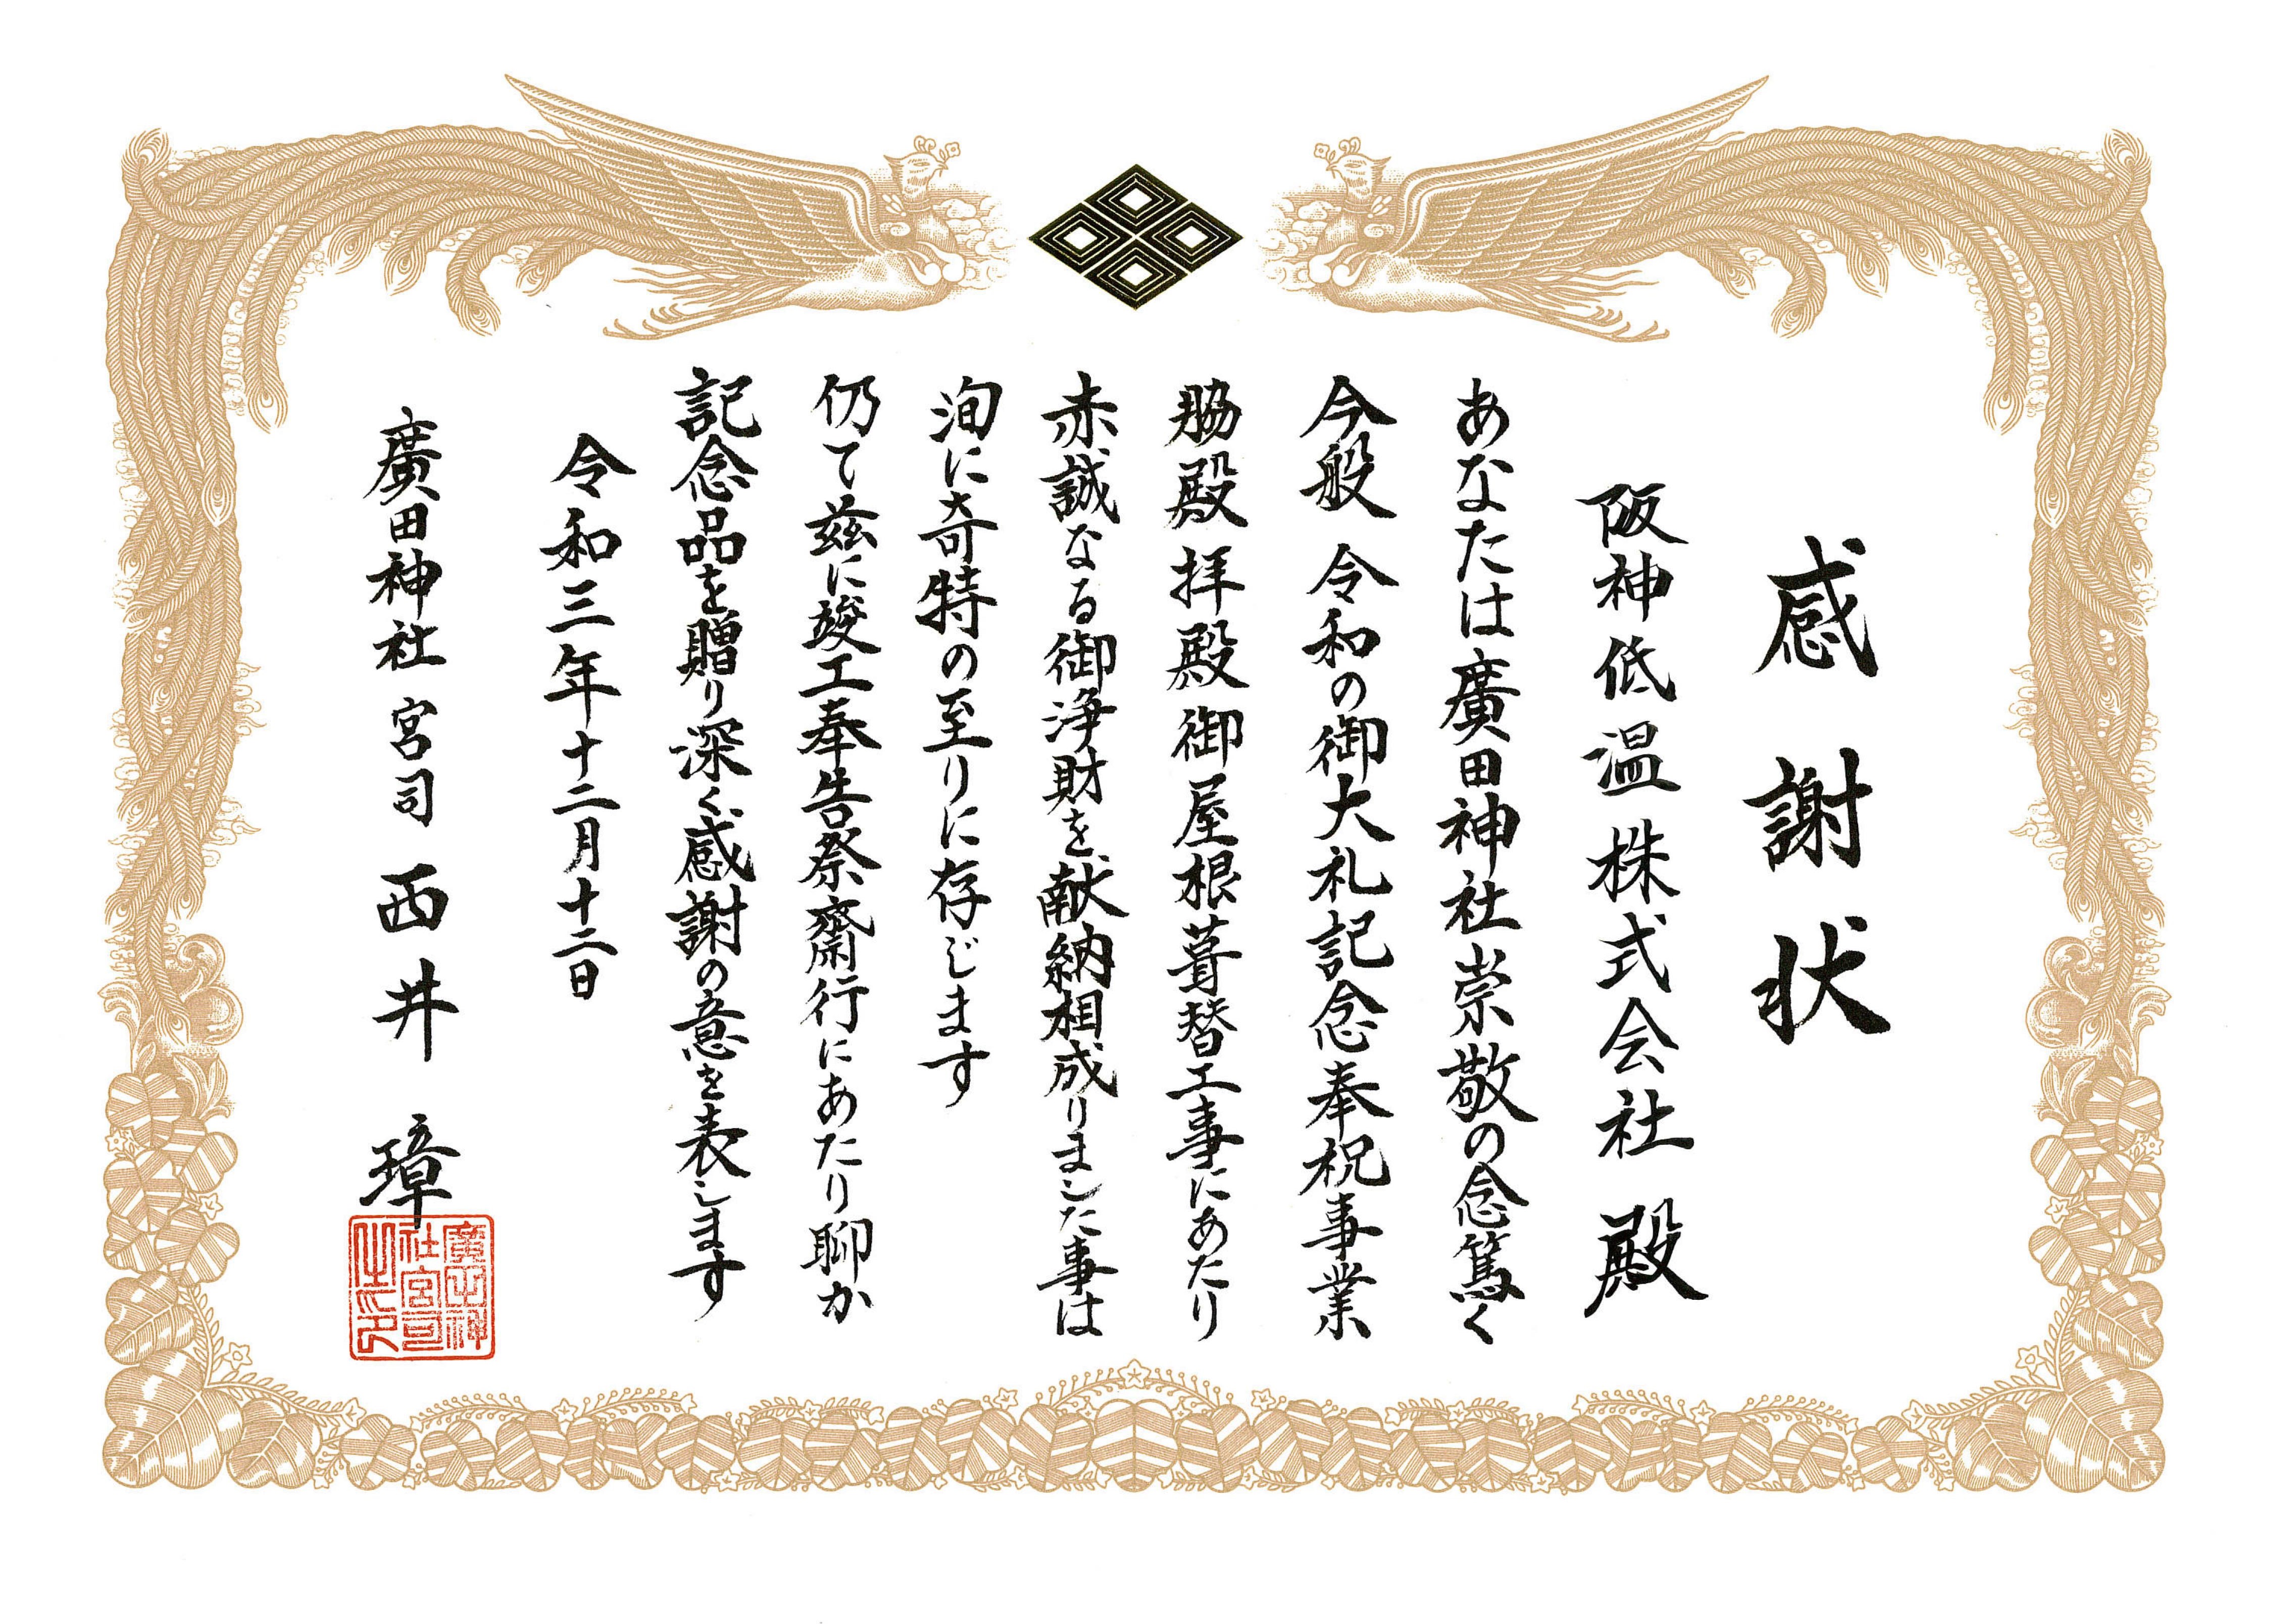 感謝状
阪神低温株式会社 殿
あなたは廣田神社崇敬の念篤く
今般 令和の御大礼記念奉祝事業
脇殿 拝殿 御屋根葺替工事にあたり
赤誠なる御浄財を献納相成りました事は
洵に奇特の至りに存じます
仍て茲に竣工奉告祭齋行にあたり聊か
記念品を贈り深く感謝の意を表します
令和三年十二月十二日
廣田神社 宮司 西井 璋
廣田神
社宮司
之印